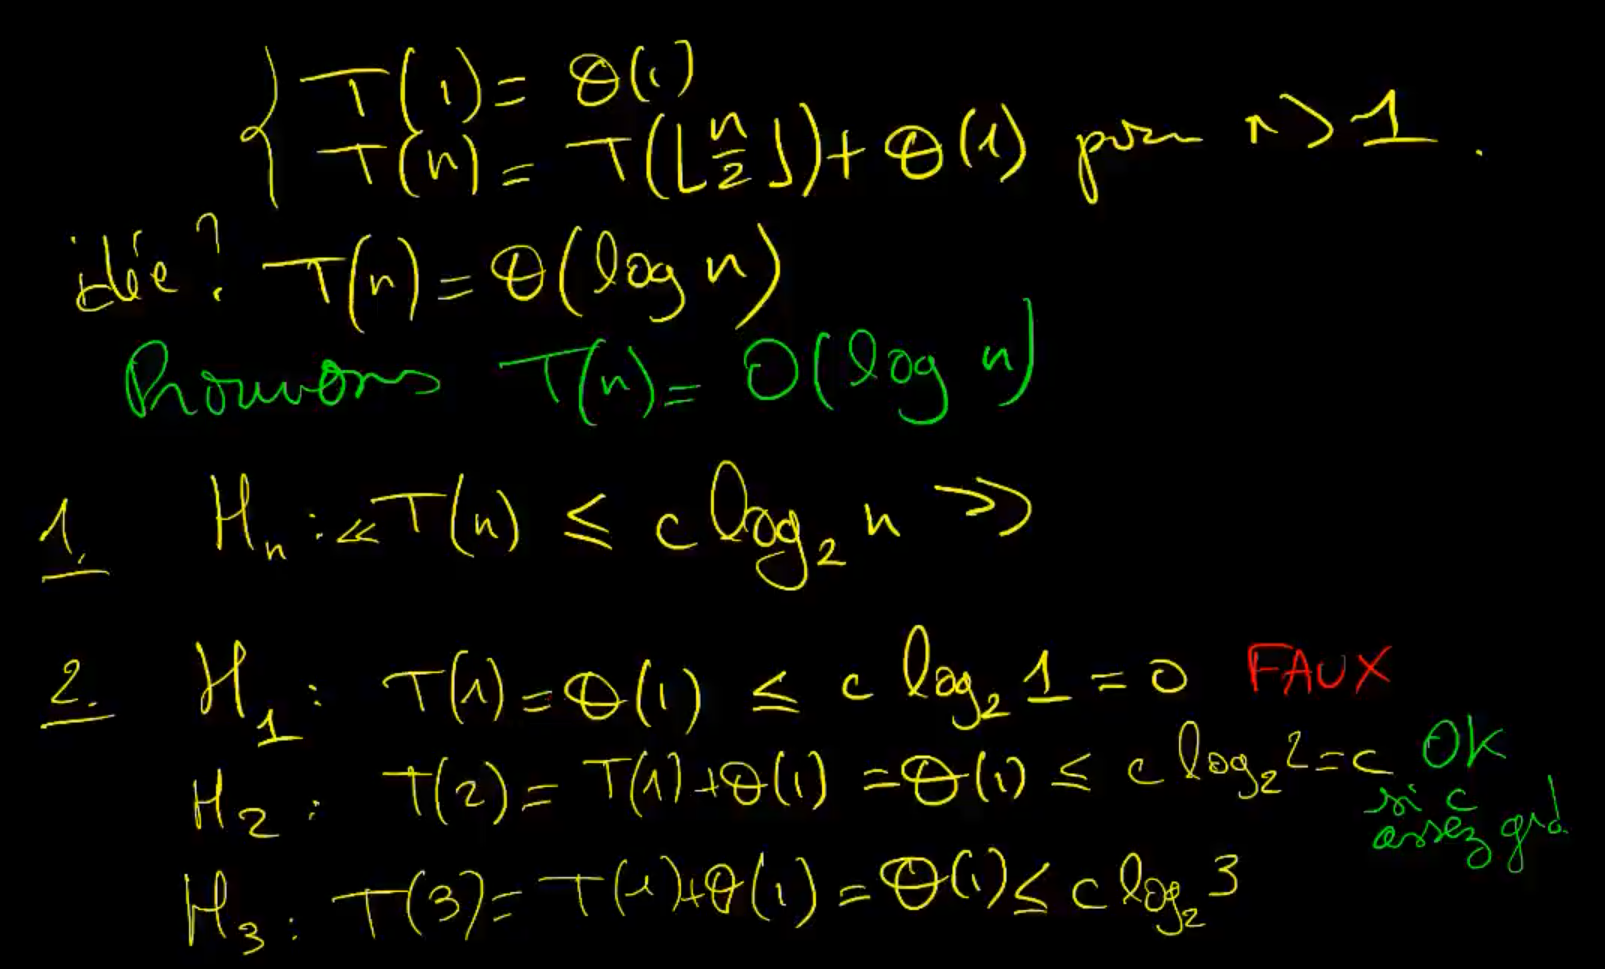 T(1) = Θ(1)
T(n) = T(⌊n/2⌋) + Θ(1) pour n > 1.
idée? T(n) = Θ(log n)
Prouvons T(n) = O(log n)
1. Hn : « T(n) ≤ c log₂ n »
2. H₁ : T(1) = Θ(1) ≤ c log₂ 1 = 0 FAUX
H₂ : T(2) = T(1) + Θ(1) = Θ(1) ≤ c log₂ 2 = c OK
si c
assez grd
H₃ : T(3) = T(1) + Θ(1) = Θ(1) ≤ c log₂ 3